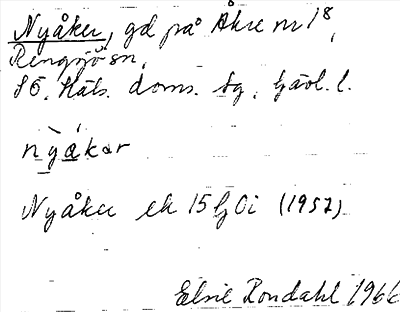 Nyåker, gd på Åkre nr 18,
Rengsjö sn,
SÖ. Häls. doms. sg. Gävl. l.
nyakər
Nyåker ek 15 G 0i (1957)
Elsie Rondahl 1966